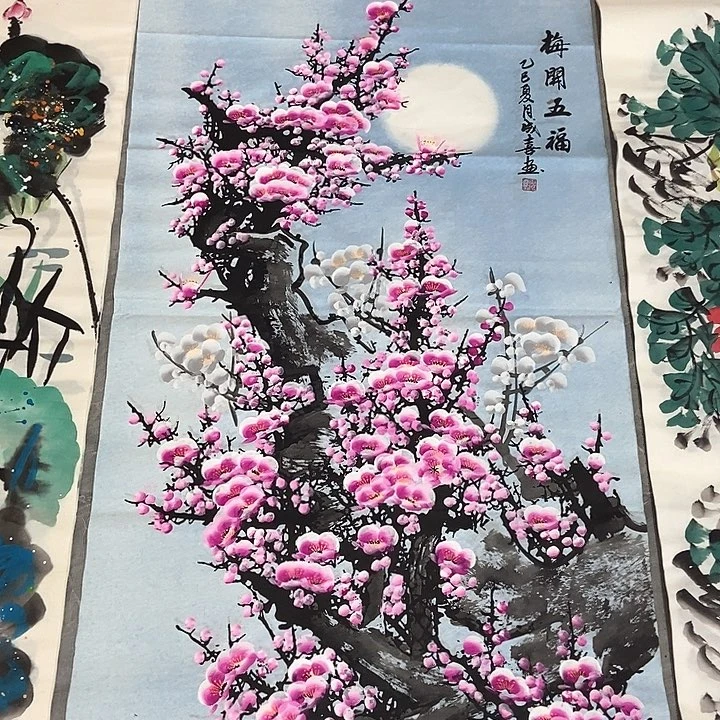 梅開五福
乙巳夏月成喜画